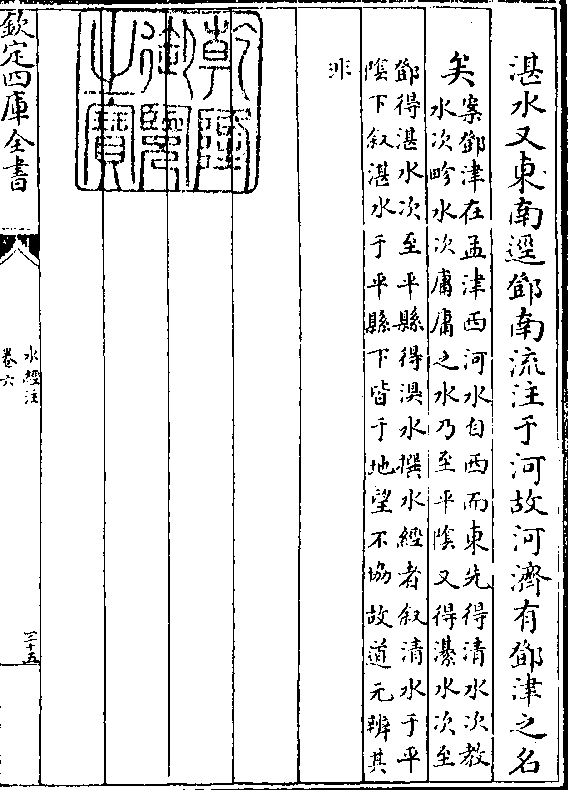 湛水又東南逕鄧南流注于河故河濟有鄧津之名
矣案鄧津在孟津西河水自西而東先得清水次教
水次畛水次庸庸之水乃至平陰又得瀍水次至
鄧得湛水次至平縣得湨水撰水經者叙清水于平
陰下叙湛水于平縣下皆于地望不協故道元辨其
非
乾隆御覽之寶
欽定四庫全書
水經注
卷六
三十五